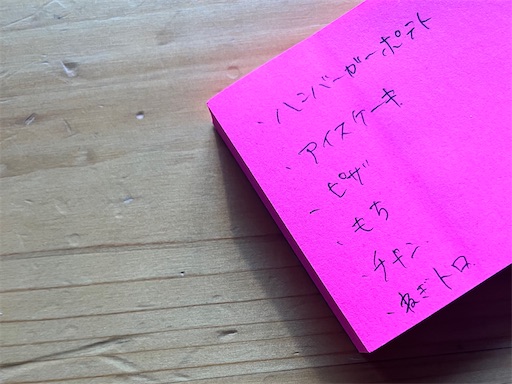 、ハンバーガーポテト
、アイスケーキ
、ピザ
、もち
、チキン
、ねぎトロ